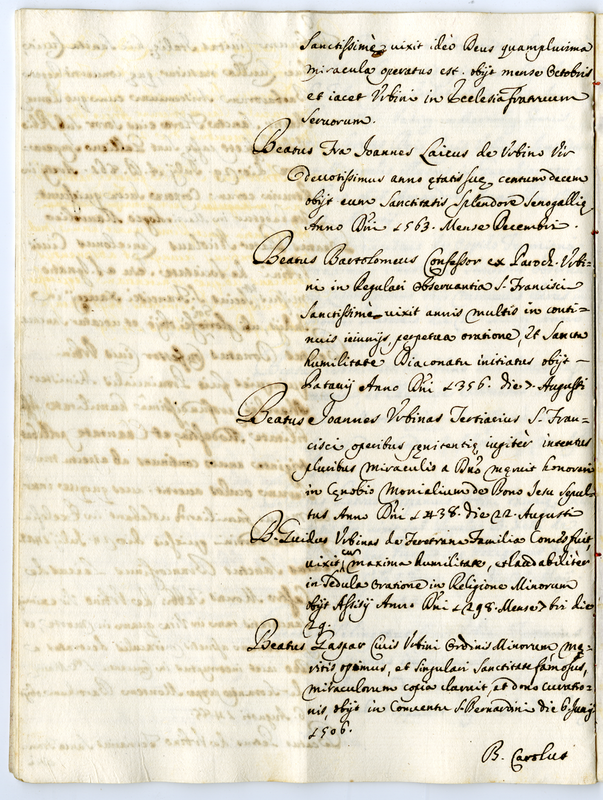 Sanctissimè uixit ideò Deus quamplurima
miracula operatus est. obijt mense Octobris
et iacet Vrbini in Ecclesia fratrum
Seruorum.
Beatus Fra Joannes Laicus de Vrbino Vir
deuotissimus anno ętatis suę centum decem
obijt cum Sanctitatis Splendore Senogallię
Anno Dni 1563. Mense Decembri.
Beatus Bartolomeus Confessor ex Paroch. Vrbi=
ni in Regulari obseruantia S. Francisci
Sanctissimè uixit annis multis in conti=
nuis ieiunijs, perpetua oratione, et Sancta
humilitate Diaconatu initiatus obijt
Patauij Anno Dni 1356. die 7. Augusti
Beatus Joannes Vrbinas Tertiarius S. Fran=
cisci operibus pęnitentię iugiter intentus
pluribus miraculis a Dno męruit honorari
in Cęnobio Monialium de Bono Jesu Sepul=
tus Anno Dni 1438. die 22. Augusti
B. Guidus Vrbinas de Feretrana Familia fuit
uixit cum maxima humilitate, et laudabiliter
in Sedula Oratione in Religione Minorum
obijt Assisij Anno Dni 1298. Mense 7bri die
29.
Beatus Gaspar Ciuis Vrbini Ordinis Minorum mę=
ritis optimus, et singulari Sanctitate famosus,
miraculorum copia claruit, et dono curatio=
nis, obijt in Conuentu S. Bernardini die 6. Junij
1506.
B. Carolus